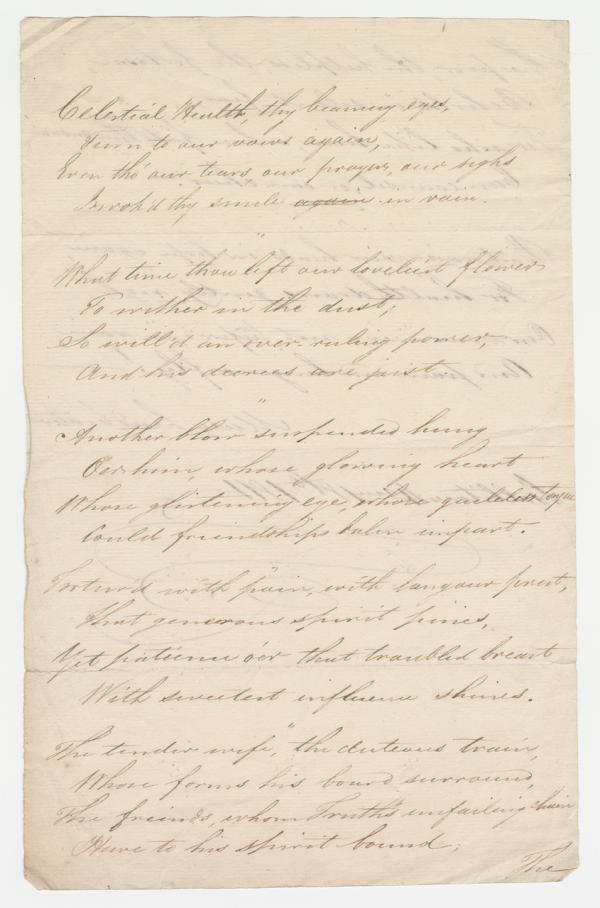 Celestial Health, thy beaming eyes,
Turn to our vows again,
Even tho' our tears our prayers, our sighs
Invok'd thy smile again in vain.
"
What time thou left our loveliest flower
To wither in the dust;
So will'd an over-ruling power,
And his decrees are just.
"
Another blow suspended hung
O'er him, whose glowing heart
Whose glistening eye, whose guileless tongue
Could friendships balm impart.
"
Tortur'd with pain, with langour prest,
That generous spirit pines,
Yet patience o'er that troubled breast
With sweetest influence shines.
"
The tender wife, the duteous train,
Whose forms his board surround,
The friends, whom Truth's unfailing chain
Have to his spirit bound;
The